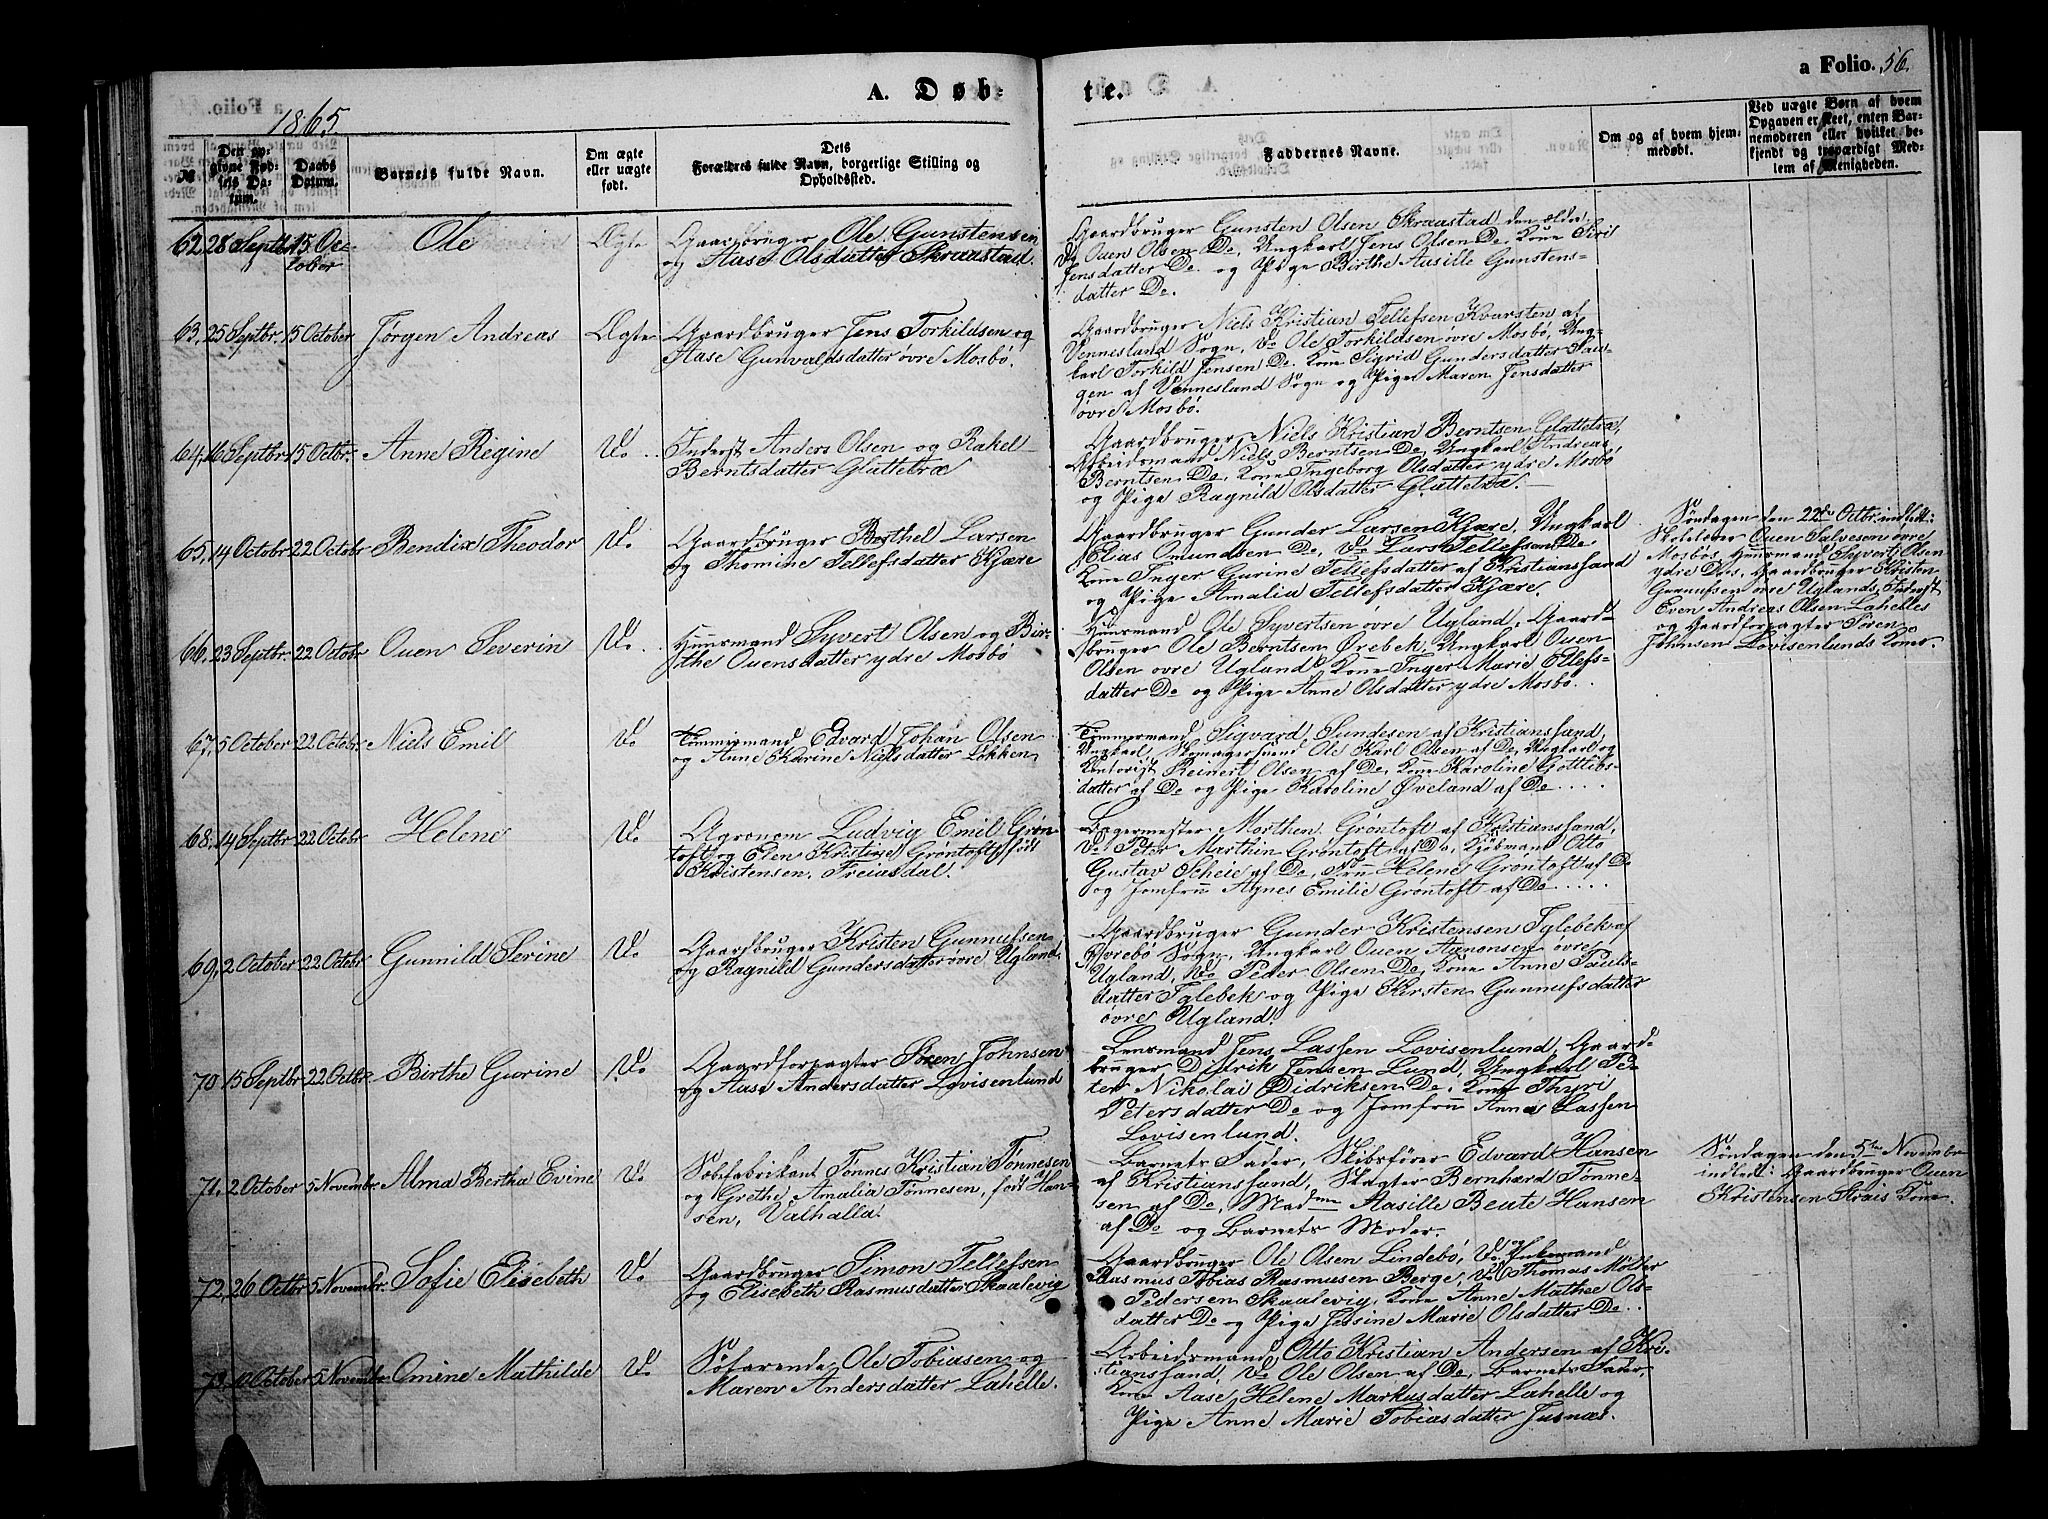 a Folio. 56.
A. Døb- te.
1865
№
Den opgivne Fødsels Datum.
Daabs Datum.
Barnets fulde Navn.
Om ægte eller uægte født.
Dets
Forældres fulde Navn, borgerlige Stilling og
Opholdssted.
Faddernes Navne.
Om og af hvem hjemmedøbt.
Ved uægte Børn af hvem
Opgaven er skeet, enten Bar-
nemoderen eller hvilket be-
kjendt og troværdigt Med-
lem af Menigheden.
62. 28 Septbr. 15 Oc-
tober
Ole
Ægte
Gaardbruger Ole Gunstensen
og Aase Olsdatter Skraastad.
Gaardbruger Gunsten Olsen Skraastad den ældre,
Do Ouen Olsen Do, Ungkarl Jens Olsen Do, Kone Siri
Jensdatter Do og Pige Birthe Aasille Gunstens-
datter Do.
63. 25 Septbr. 15 October
Jørgen Andreas
Ægte
Gaardbruger Jens Torkildsen og
Aase Gunvaldsdatter øvre Mosbø.
Gaardbruger Niels Kristian Tellefsen Kvarsten af
Vennesland Sogn, Do Ole Torkildsen øvre Mosbø, Ung-
karl Torkild Jensen Do, Kone Sigrid Gundersdatter Hau-
gen af Vennesland Sogn og Pige Maren Jensdatter
øvre Mosbø.
64. 16 Septbr 15 Octbr.
Anne Regine
Do
Inderst Anders Olsen og Rakel
Berntsdatter Glattetræ
Gaardbruger Niels Kristian Berntsen Glattetræ,
Arbeidsmand Niels Berntsen Do, Ungkarl Andreas
Berntsen Do, Kone Ingeborg Olsdatter ydre Mosbø
og Pige Ragnild Olsdatter Glattetræ.
65. 14 Octobr 22 Octobr
Bendix Theodor
Do
Gaardbruger Berthel Larsen
og Thomine Tellefsdatter Kjære
Gaardbruger Gunder Larsen Kjære, Ungkarl
Elias Omundsen Do, Do Lars Tellefsen Do
Kone Inger Gurine Tellefsdatter af Kristianssand
og Pige Amalia Tellefsdatter Kjære.
Søndagen den 22de Octbr. indledt:
Skolelærer Ouen Salvesen øvre
Mosbøs, Huusmand Syvert Olsen
ydre Dos, Gaardbruger Kristen
Gunnufsen øvre Uglands, Inderst
Even Andreas Olsen Lahelles
og Gaardforpagter Søren
Johnsen Lovisenlunds Koner.
66. 23 Septbr. 22 Octobr
Ouen Severin
Do
Huusmand Syvert Olsen og Bir-
the Ouensdatter ydre Mosbø
Huusmand Ole Syvertsen øvre Ugland, Gaard-
bruger Ole Berntsen Ørebek, Ungkarl Ouen
Olsen øvre Ugland, Kone Inger Marie Ellefs-
datter Do og Pige Anne Olsdatter ydre Mosbø.
67. 5 October 22 Octobr.
Niels Emil
Do
Tømmermand Edvard Johan Olsen
og Anne Karine Nielsdatter Løkken
Tømmermand Sigvard Gundesen af Kristianssand,
Ungkarl, Skomagersvend Ole Karl Olsen af Do, Ungkarl og
Kontorist Reinert Olsen af Do, Kone Karoline Gottlibs-
datter af Do og Pige Karoline Øveland af Do
68. 14 Septbr 22 Octobr
Helene
Do
Agronom Ludvig Emil Grøn-
toft og Elen Kristine Grøntoft, født
Kristensen, Treiasdal.
Bagermester Morthen Grøntoft af Kristianssand,
Do Peter Marthin Grøntoft af Do, Kjøbmand Otto
Gustav Scheie af Do, Fru Helene Grøntoft af Do
og Jomfru Agnes Emilie Grøntoft af Do
69. 2 October 22 Octobr
Gunnild Serine
Do
Gaardbruger Kristen Gunnufsen
og Ragnild Gundersdatter øvre Ugland.
Gaardbruger Gunder Kristensen Iglebek af
Øvrebø Sogn, Ungkarl Ouen Aanonsen øvre
Ugland, Do Peder Olsen Do, Kone Anne Pauls-
datter Iglebek og Pige Kirsten Gunnufsdatter
øvre Ugland.
70 15 Septbr 22 Octbr.
Birthe Gurine
Do
Gaardforpagter Søren Johnsen
og Aase Andersdatter Lovisenlund
Lensmand Jens Lassen Lovisenlund, Gaard-
bruger Didrik Jensen Lund, Ungkarl Pe-
ter Nikolai Didriksen Do, Kone Thyri
Petersdatter Do og Jomfru Anna Lassen
Lovisenlund.
71. 2 October 5 Novembr.
Alma Bertha Evine
Do
Sæbefabrikant Tønnes Kristian Tønnesen
og Grethe Amalia Tønnesen, født Han-
sen, Valhalla.
Barnets Fader, Skibsfører Edvard Hansen
af Kristianssand, Slagter Bernhard Tønne-
sen af Do, Madme Aasille Beate Hansen
af Do og Barnets Moder.
Søndagen den 5te Novembr
indledt: Gaardbruger Ouen
Kristensen Strais Kone.
72. 26 Octbr 5 Novembr.
Sofie Elisebeth
Do
Gaardbruger Simon Tellefsen
og Elisebeth Rasmusdatter Skaalevig
Gaardbruger Ole Olsen Lindebø, Do og
Rasmus Tobias Rasmusen Berge, Do Thomas Møller
Pedersen Skaalevig, Kone Anne Mathea Ols-
datter Do og Pige Jensine Marie Olsdatter Do
73. 10 October 5 Novembr.
Omine Mathilde
Do
Søfarende Ole Tobiasen og
Maren Andersdatter Lahelle.
Arbeidsmand Otto Kristian Andersen af Kri-
stianssand, Do Ole Olsen af Do, Barnets Fader,
Kone Aase Helene Markusdatter Lahelle og
Pige Anne Marie Tobiasdatter Justnæs.